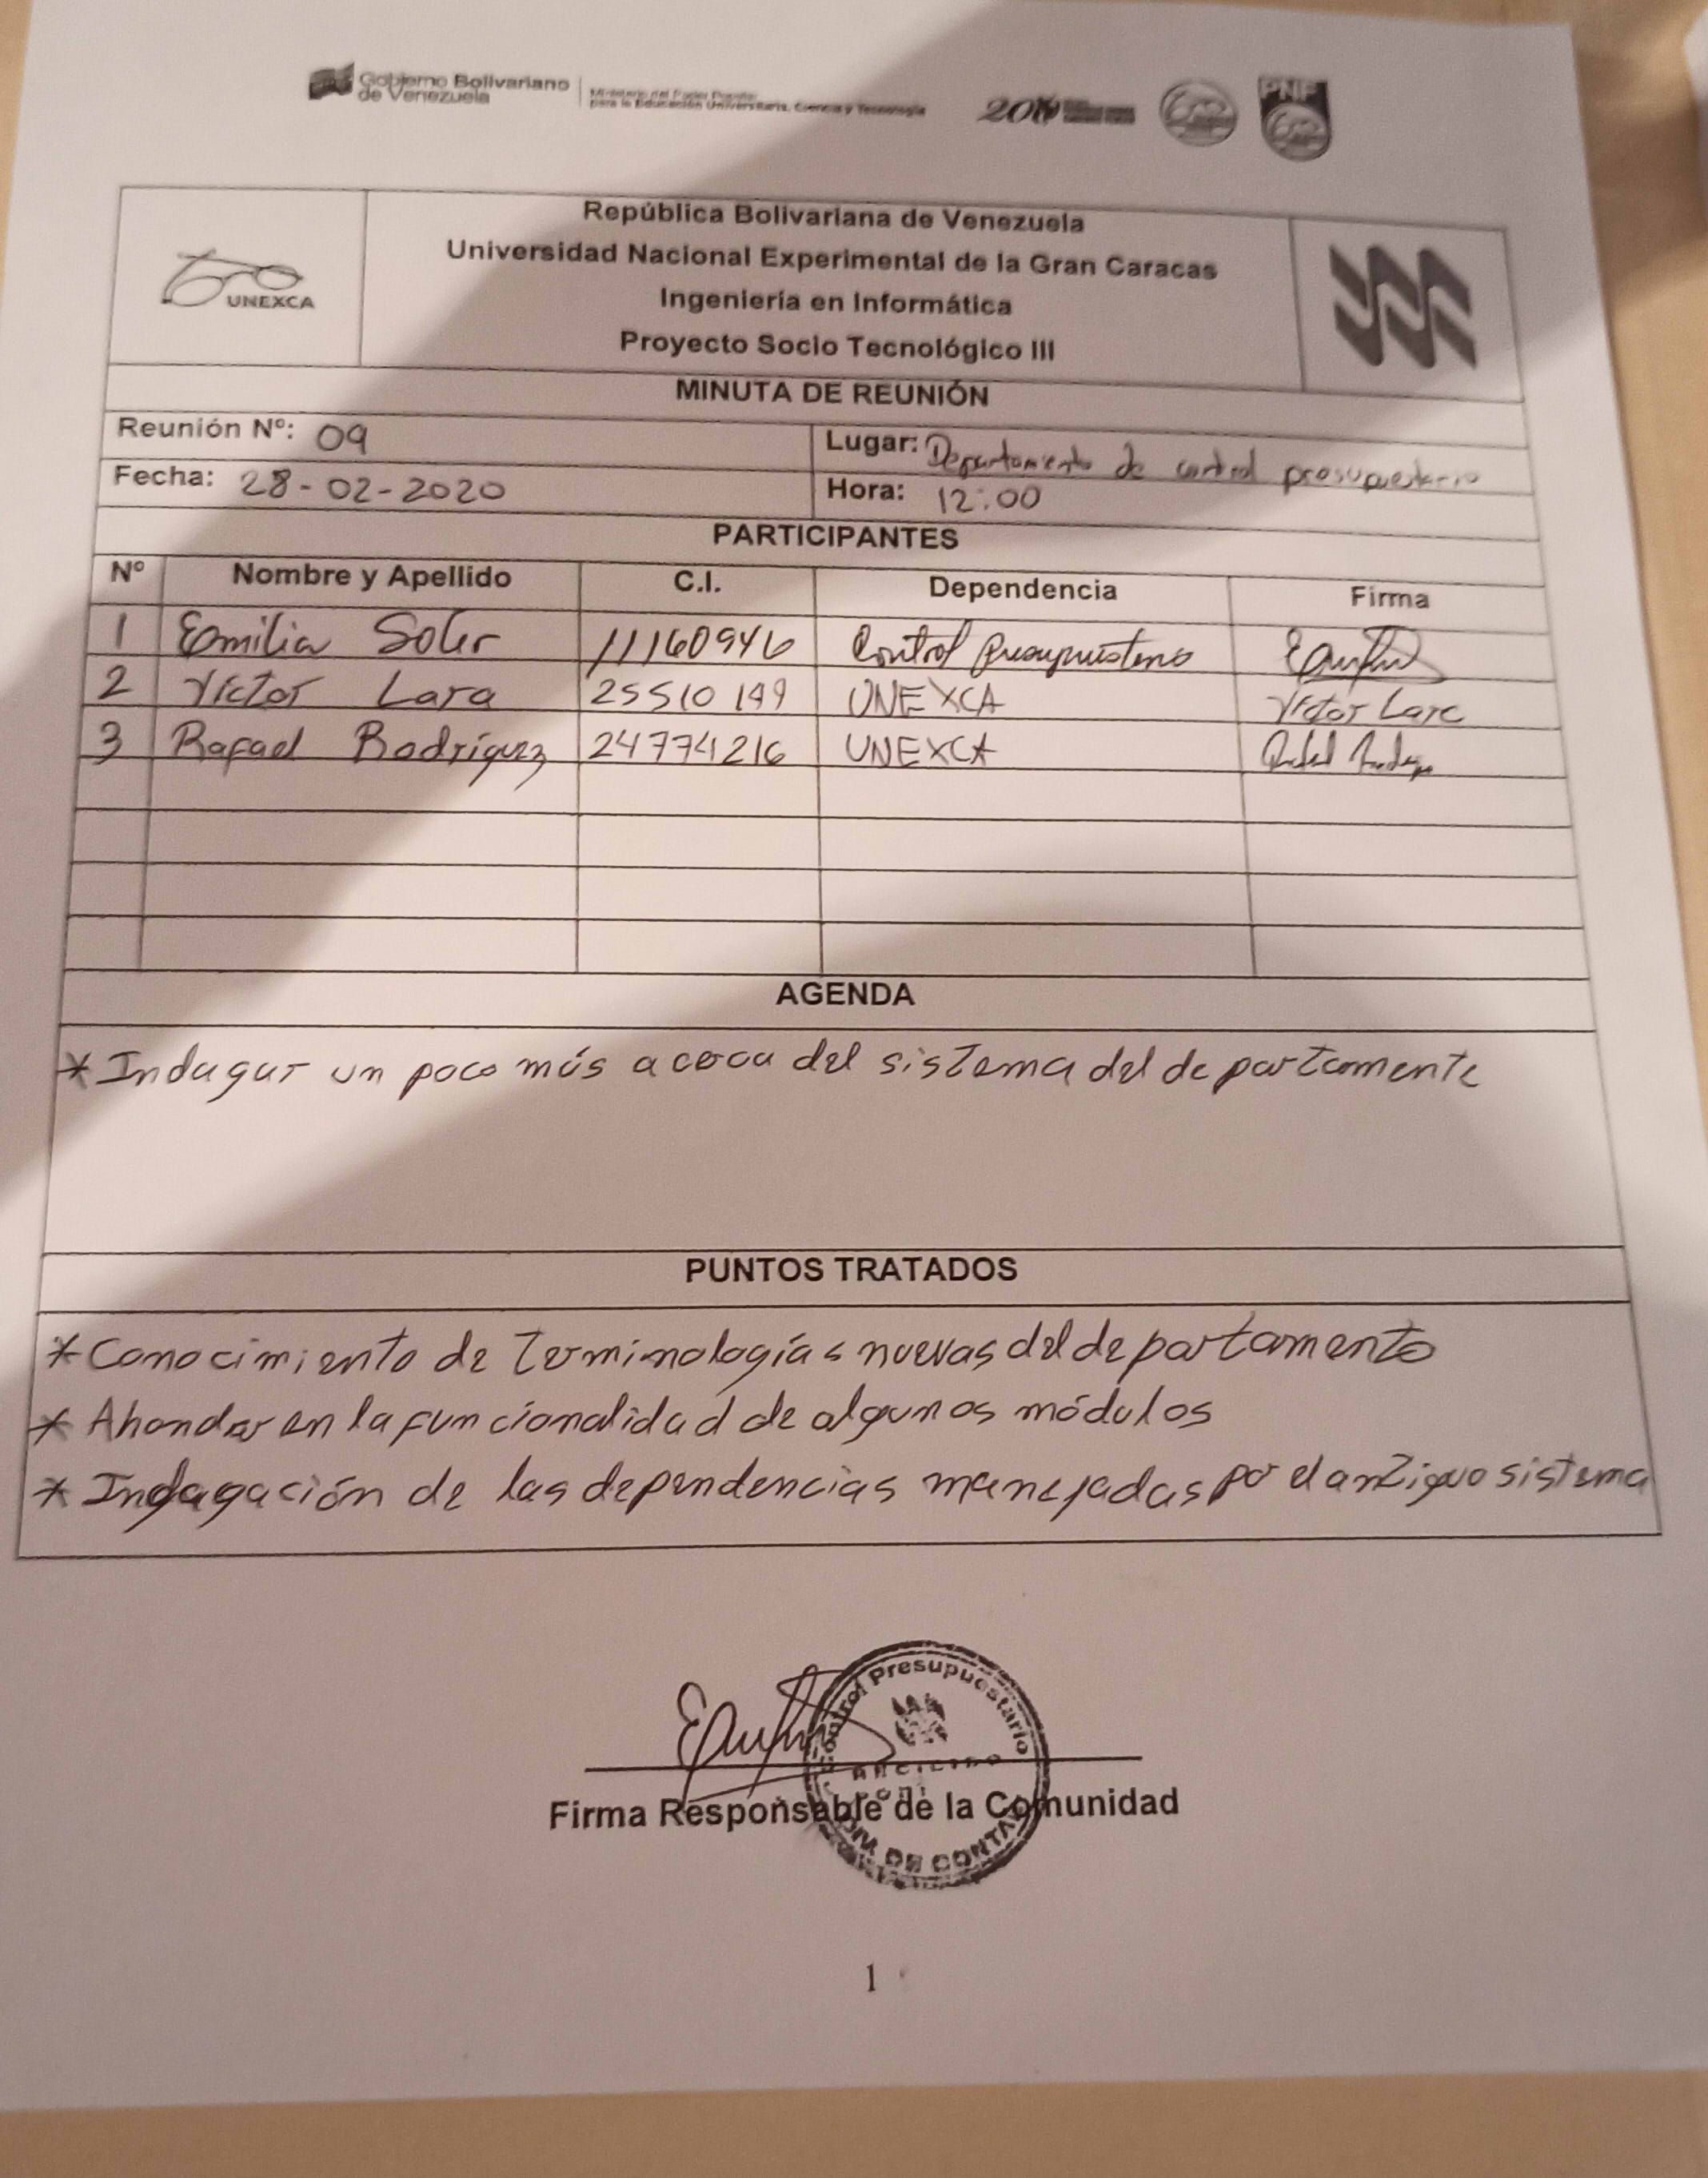 Gobierno Bolivariano
de Venezuela
Ministerio del Poder Popular
para la Educación Universitaria, Ciencia y Tecnología
200
PNF
República Bolivariana de Venezuela
Universidad Nacional Experimental de la Gran Caracas
UNEXCA
Ingeniería en Informática
Proyecto Socio Tecnológico III
MINUTA DE REUNIÓN
Reunión Nº: 09
Lugar: Departamento de control presupuestario
Fecha: 28-02-2020
Hora: 12:00
PARTICIPANTES
Nº Nombre y Apellido C.I. Dependencia Firma
1 Emilia Soler Control Presupuestario
2 Víctor Lara 25510149 UNEXCA Víctor Lara
3 Rafael Rodríguez 24774216 UNEXCA
AGENDA
* Indagar un poco más acerca del sistema del departamente
PUNTOS TRATADOS
* Conocimiento de Terminologías nuevas del departamento
* Ahondar en la funcionalidad de algunos módulos
* Indagación de las dependencias manejadas por el antiguo sistema
Control Presupuestario
Firma Responsable de la Comunidad
DIV. DE CONTA
1